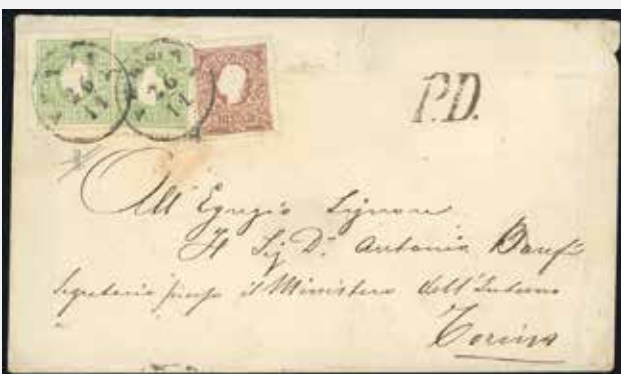 26
11
26
11
P.D.
All' Egregio Signore
Il Sig. Dr. Antonio
Segretario presso il Ministero dell'Interno
Torino